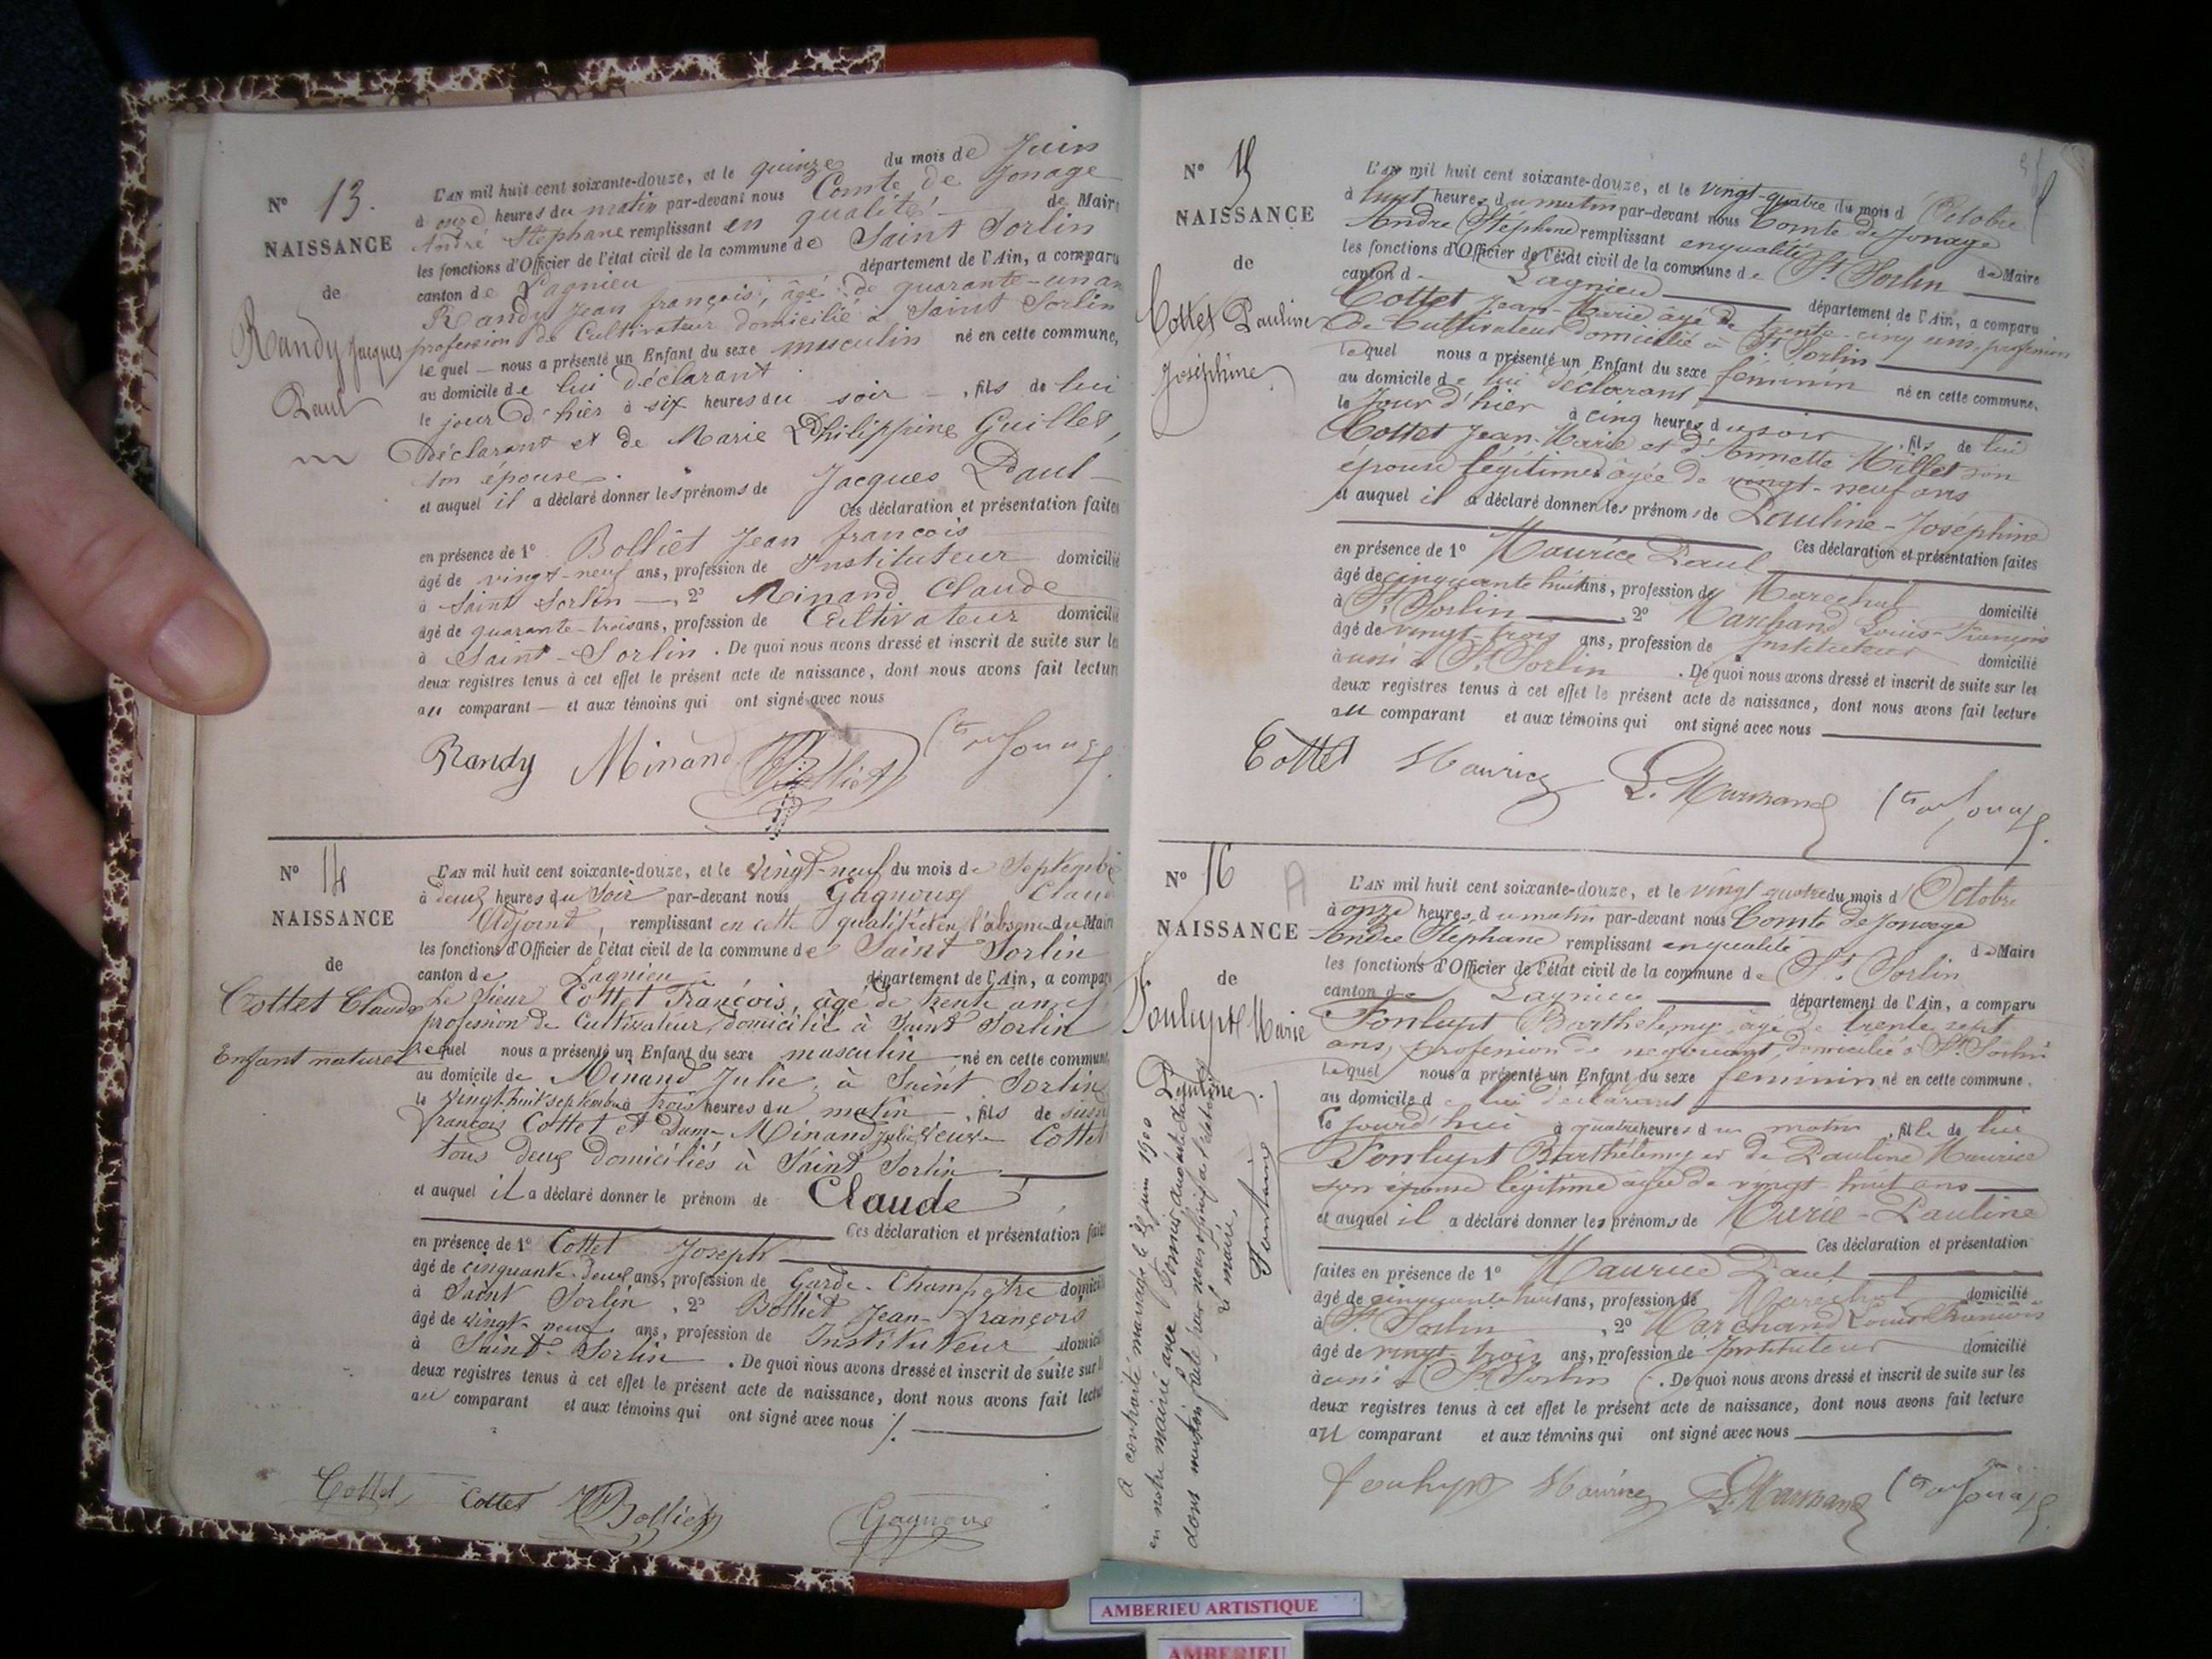 N° 13.
NAISSANCE
de
Randy Jacques
Paul
L'AN mil huit cent soixante-douze, et le quinze du mois de Juin
à onze heures du matin par-devant nous Comte de Jonage
André Stéphane remplissant en qualité de Maire
les fonctions d'Officier de l'état civil de la commune de Saint Sorlin
canton de Lagnieu département de l'Ain, a comparu
Randy Jean françois, âgé de quarante-un an
profession de Cultivateur domicilié à Saint Sorlin
lequel nous a présenté un Enfant du sexe masculin né en cette commune,
au domicile de lui déclarant
le jour d'hier à six heures du soir, fils de lui
Déclarant et de Marie Philippine Guillet,
son épouse.
et auquel il a déclaré donner les prénoms de Jacques Paul
Ces déclaration et présentation faites
en présence de 1° Bolliet Jean françois
âgé de vingt-neuf ans, profession de Instituteur domicilié
à Saint Sorlin, 2° Minand Claude
âgé de quarante-trois ans, profession de Cultivateur domicilié
à Saint-Sorlin. De quoi nous avons dressé et inscrit de suite sur les
deux registres tenus à cet effet le présent acte de naissance, dont nous avons fait lecture
au comparant et aux témoins qui ont signé avec nous
Randy Minand Bolliet Cte de Jonage
N° 14
NAISSANCE
de
Cottet Claude
Enfant naturel
L'AN mil huit cent soixante-douze, et le Vingt-neuf du mois de Septembre
à deux heures du Soir par-devant nous Gagnoux Claude
Adjoint, remplissant en cette qualité et en l'absence du Maire
les fonctions d'Officier de l'état civil de la commune de Saint Sorlin
canton de Lagnieu département de l'Ain, a comparu
Le Sieur Cottet François, âgé de trente ans
profession de Cultivateur, domicilié à Saint Sorlin
lequel nous a présenté un Enfant du sexe masculin né en cette commune,
au domicile de Minand Julie, à Saint Sorlin
le vingt-huit septembre à trois heures du matin, fils de
françois Cottet et Dame Minand Julie Veuve Cottet
tous deux domiciliés à Saint Sorlin
et auquel il a déclaré donner le prénom de Claude
Ces déclaration et présentation faites
en présence de 1° Cottet Joseph
âgé de cinquante-deux ans, profession de Garde-Champetre domicilié
à Saint Sorlin, 2° Bolliet Jean-françois
âgé de vingt-neuf ans, profession de Instituteur domicilié
à Saint-Sorlin. De quoi nous avons dressé et inscrit de suite sur les
deux registres tenus à cet effet le présent acte de naissance, dont nous avons fait lecture
au comparant et aux témoins qui ont signé avec nous
Cottet Cottet Bolliet Gagnoux
N° 15
NAISSANCE
de
Cottet Pauline
Joséphine
L'AN mil huit cent soixante-douze, et le vingt-quatre du mois d'Octobre
à huit heures du matin par-devant nous Comte de Jonage
Andre Stéphane remplissant en qualité de Maire
les fonctions d'Officier de l'état civil de la commune de St. Sorlin
canton de Lagnieu département de l'Ain, a comparu
Cottet Jean-Marie âgé de trente-cinq ans, profession
de Cultivateur domicilié à St. Sorlin
lequel nous a présenté un Enfant du sexe féminin né en cette commune,
au domicile de lui déclarant
le Jour d'hier à cinq heures du soir, fils de lui
Cottet Jean-Marie et d'Annette Millet son
épouse légitime âgée de vingt-neuf ans
et auquel il a déclaré donner les prénoms de Pauline-Joséphine
Ces déclaration et présentation faites
en présence de 1° Maurice Paul
âgé de cinquante huit ans, profession de Maréchal domicilié
à St. Sorlin, 2° Marchand Louis-François
âgé de vingt-trois ans, profession de Instituteur domicilié
aussi à St. Sorlin. De quoi nous avons dressé et inscrit de suite sur les
deux registres tenus à cet effet le présent acte de naissance, dont nous avons fait lecture
au comparant et aux témoins qui ont signé avec nous
Cottet Maurice L. Marchand Cte de Jonage
N° 16
A
NAISSANCE
de
Fonlupt Marie
Pauline.
A contracté mariage le juin 1900
en notre mairie avec
dont mention faite par nous
Le maire,
Fontaine
L'AN mil huit cent soixante-douze, et le vingt-quatre du mois d'Octobre
à onze heures du matin par-devant nous Comte de Jonage
Andre Stéphane remplissant en qualité de Maire
les fonctions d'Officier de l'état civil de la commune de St. Sorlin
canton de Lagnieu département de l'Ain, a comparu
Fonlupt Barthélemy âgé de trente sept
ans, profession de négociant, domicilié à St. Sorlin
lequel nous a présenté un Enfant du sexe féminin né en cette commune,
au domicile de lui déclarant
le jourd'hui à quatre heures du matin, fille de lui
Fonlupt Barthélemy et de Pauline Maurice
son épouse légitime âgée de vingt-huit ans
et auquel il a déclaré donner les prénoms de Marie-Pauline
Ces déclaration et présentation
faites en présence de 1° Maurice Paul
âgé de cinquante huit ans, profession de Maréchal domicilié
à St. Sorlin, 2° Marchand Louis François
âgé de vingt-trois ans, profession de Instituteur domicilié
aussi à St. Sorlin. De quoi nous avons dressé et inscrit de suite sur les
deux registres tenus à cet effet le présent acte de naissance, dont nous avons fait lecture
au comparant et aux témoins qui ont signé avec nous
fonlupt Maurice L. Marchand Cte de Jonage
AMBERIEU ARTISTIQUE
AMBERIEU